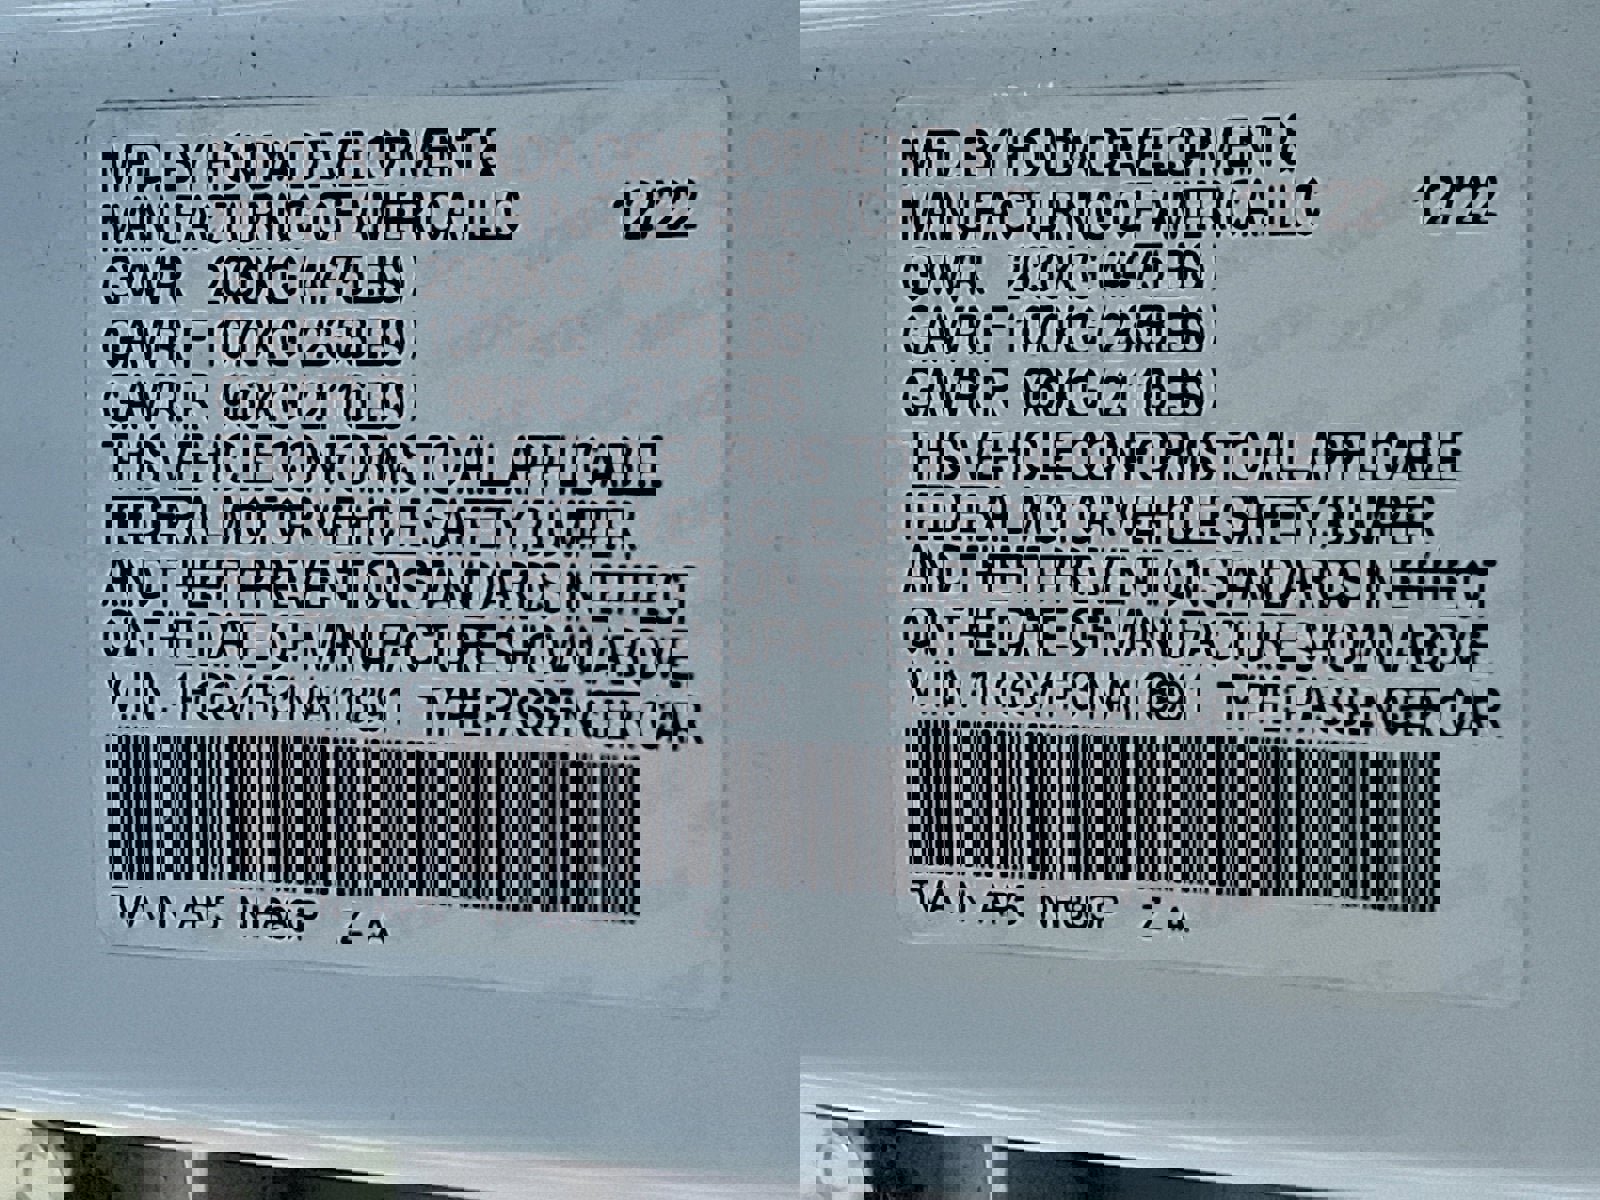 MFD. BY HONDA DEVELOPMENT &
MANUFACTURING OF AMERICA, LLC 12/22
GVWR 2030KG (4475LBS)
GAWR F 1070KG (2358LBS)
GAWR R 960KG (2116LBS)
THIS VEHICLE CONFORMS TO ALL APPLICABLE
FEDERAL MOTOR VEHICLE SAFETY, BUMPER
AND THEFT PREVENTION STANDARDS IN EFFECT
ON THE DATE OF MANUFACTURE SHOWN ABOVE.
V.I.N. TYPE: PASSENGER CAR
MFD. BY HONDA DEVELOPMENT &
MANUFACTURING OF AMERICA, LLC 12/22
GVWR 2030KG (4475LBS)
GAWR F 1070KG (2358LBS)
GAWR R 960KG (2116LBS)
THIS VEHICLE CONFORMS TO ALL APPLICABLE
FEDERAL MOTOR VEHICLE SAFETY, BUMPER
AND THEFT PREVENTION STANDARDS IN EFFECT
ON THE DATE OF MANUFACTURE SHOWN ABOVE.
V.I.N. TYPE: PASSENGER CAR